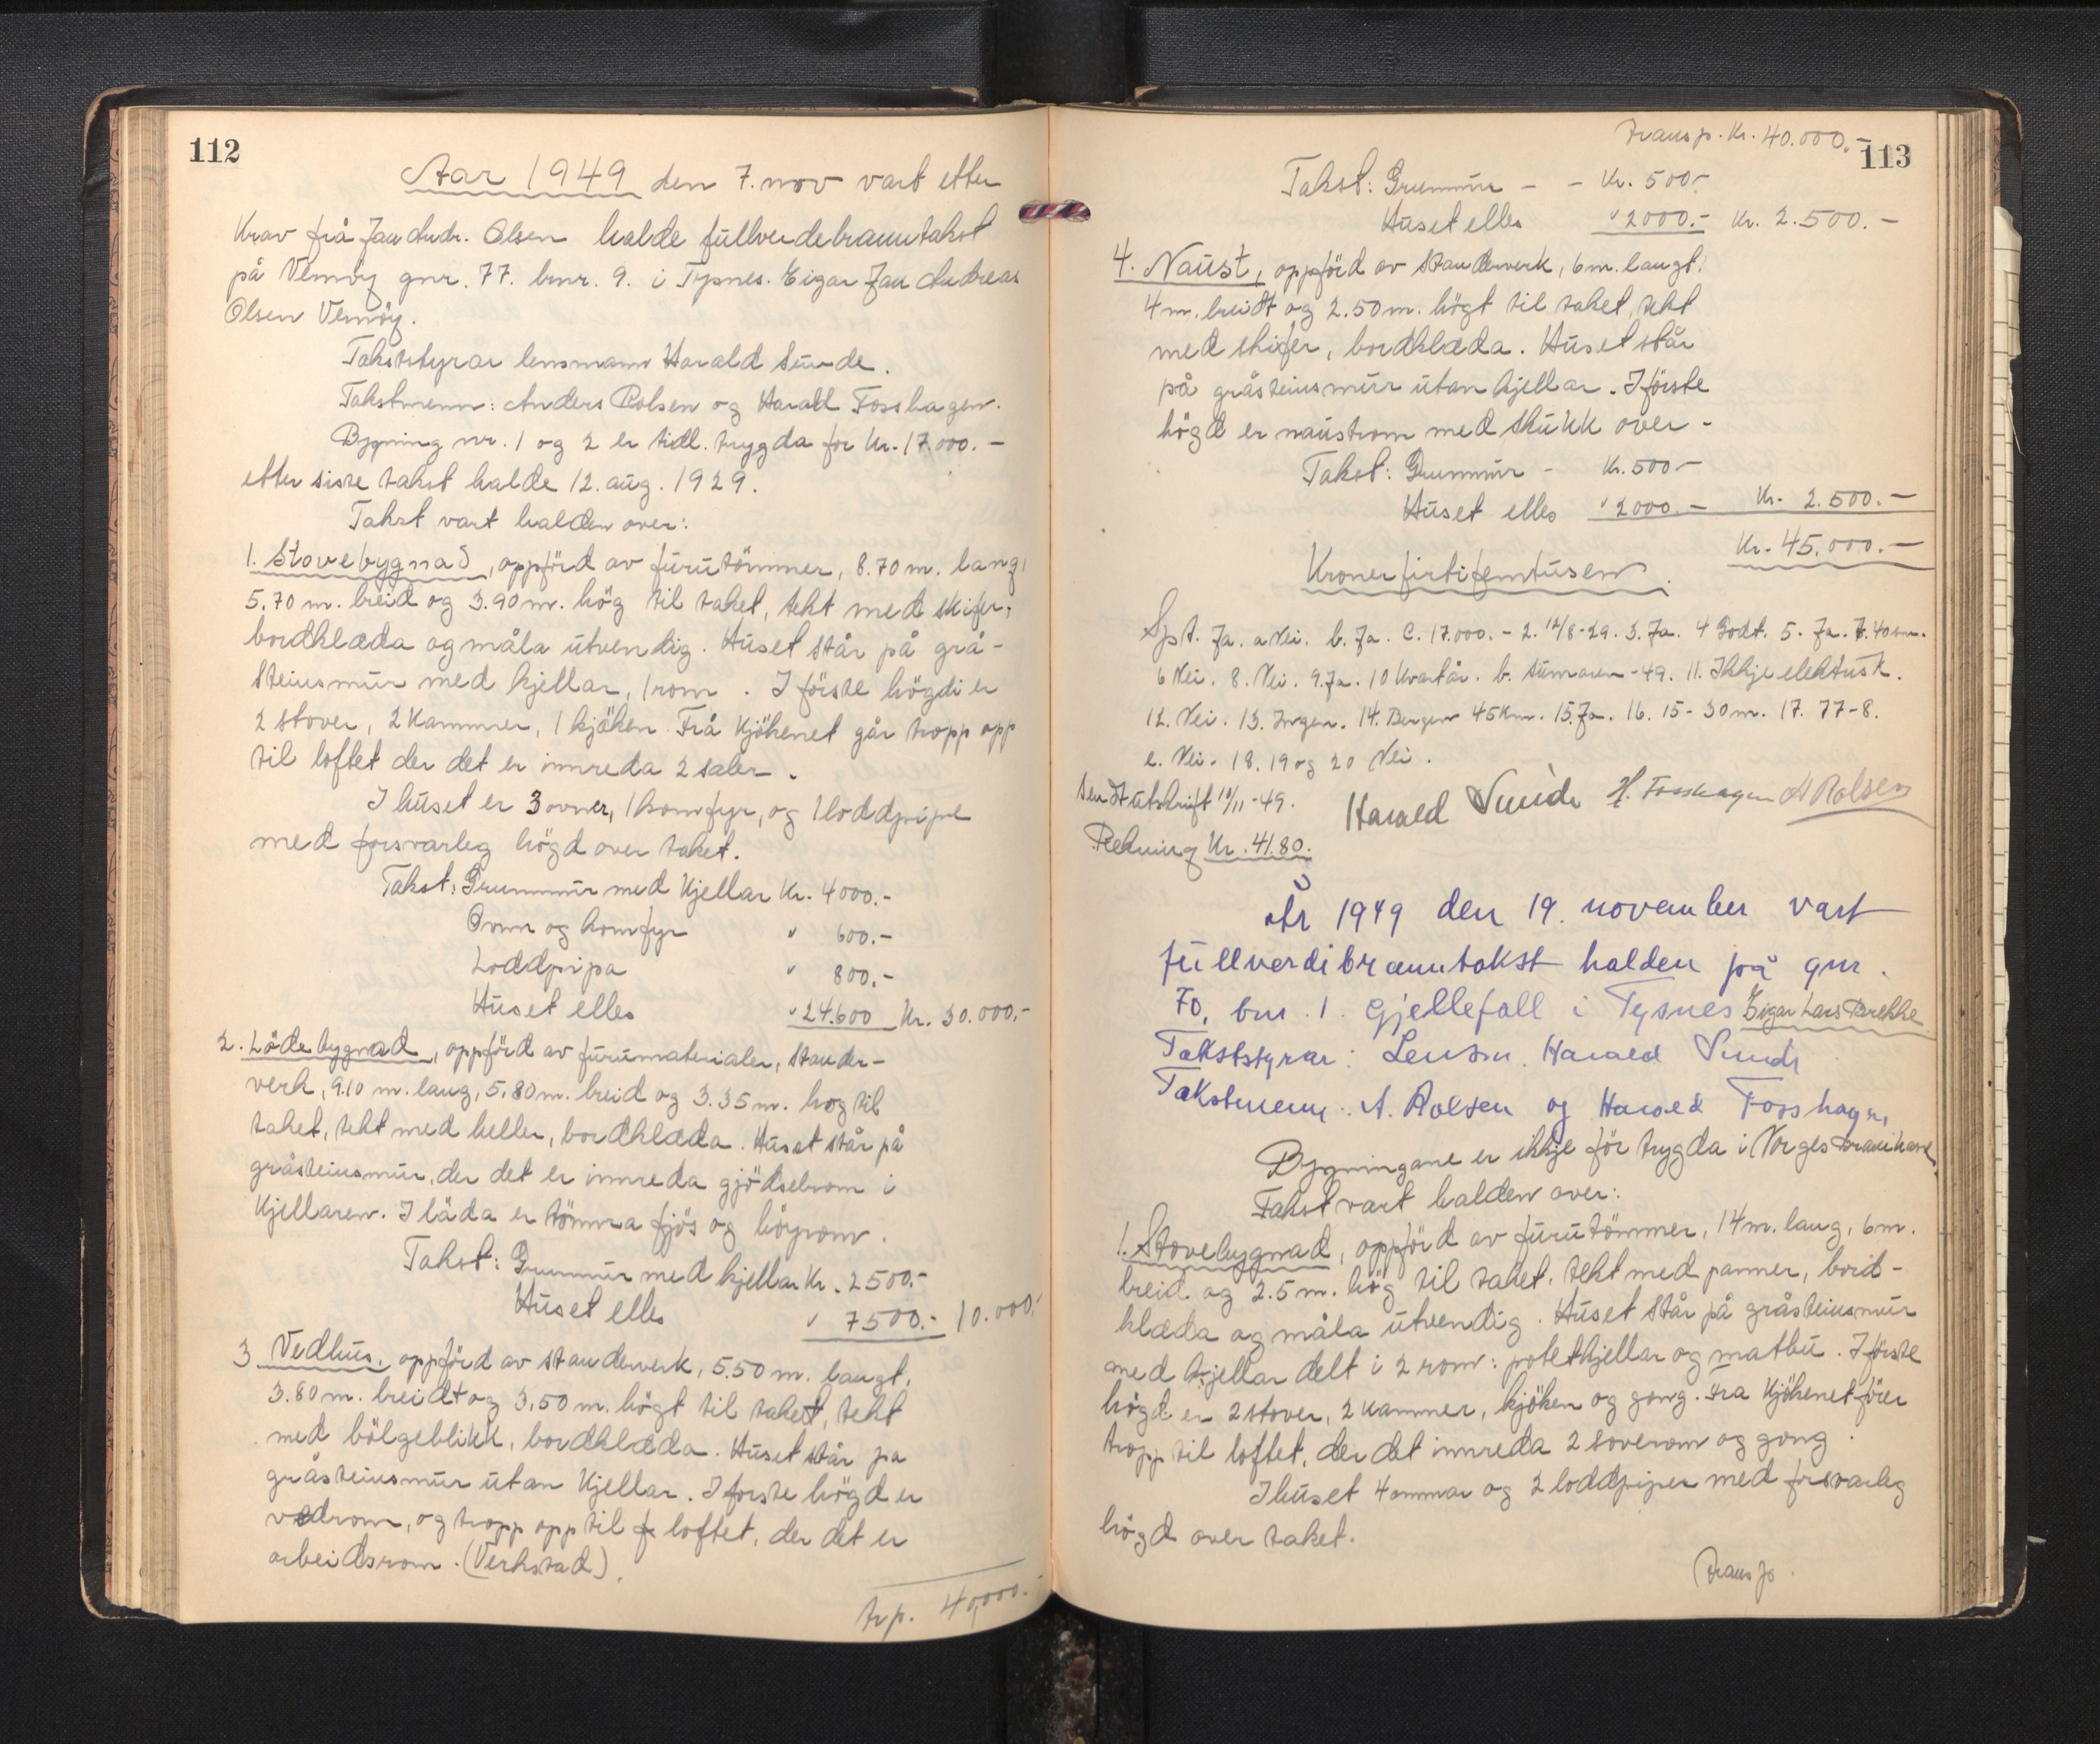 112
Aar 1949 den 7. nov vart etter
Krav frå Jan Andr. Olsen halde fullverdebranntakst
på Vernøy gnr. 77. bnr. 9. i Tysnes. Eigar Jan Andreas
Olsen Vernøy.
Takststyrar lensmann Harald Sunde.
Takstmenn: Anders Rolsen og Harald Fosshagen.
Bygning nr. 1 og 2 er tidl. trygda for Kr. 17.000.-
etter siste takst halde 12. aug. 1929.
Takst vart halden over:
1. Stovebygnad, oppförd av furutömmer, 8.70 m. lang,
5.70 m. breid og 3.90 m. hög til taket, tekt med skifer,
bordklæda og måla utvendig. Huset står på grå-
steinsmur med kjellar, 1 rom. I förste högdi er
2 stover, 2 Kammer, 1 kjöken. Frå Kjökenet går tropp opp
til loftet der det er innreda 2 saler.
I huset er 3 ovner, 1 komfyr, og 1 loddpipe
med forsvarleg högd over taket.
Takst: Grunnmur med Kjellar Kr. 4000.-
Ovnn og komfyr " 600.-
Loddpipa " 800.-
Huset elles " 24.600 Kr. 30.000.-
2. Lödebygnad, oppförd av furumaterialer, stander-
verk, 9.10 m. lang, 5.80 m. breid og 3.35 m. hog til
taket, tekt med heller, bordklæda. Huset står på
gråsteinsmur, der det er innreda gjödselrom i
Kjellaren. I låda er tömra fjös og höyrom.
Takst: Grunnmur med kjellar Kr. 2500.-
Huset elles " 7500.- 10.000.-
3 Vedhus, oppförd av standerverk, 5.50 m. langt,
3.80 m. breidt og 3,50 m. högt til taket, tekt
med bölgeblikk, bordklæda. Huset står pa
gråsteinsmur utan Kjellar. I forste högd er
vedrom, og tropp opp til loftet, der det er
arbeidsrom. (Verkstad).
trp. 40,000.-
Transp. Kr. 40.000.-
113
Takst: Grunnmur - - Kr. 500.-
Huset elles " 2000.- Kr. 2.500.-
4. Naust, oppförd av standerverk, 6 m. langt.
4 m. breidt og 2.50 m. högt til taket, tekt
med skifer, bordklæda. Huset står
på gråsteinsmur utan kjellar. I förste
högd er naustrom med skukk over -
Takst: Grunnmur - Kr. 500-
Huset elles " 2000.- Kr. 2.500.-
Kr. 45.000.-
Kroner firtifemtusen.
Spt. Ja. a Nei. b. Ja. c. 17.000.- 2. 12/8-29. 3. Ja. 4 Godt. 5. Ja. 7. 40 m.
6 Nei. 8. Nei. 9. Ja. 10 Kvartår. b. sumaren-49. 11. Ikkje elektrisk.
12. Nei. 13. Ingen. 14. Bergen 45 Km. 15. Ja. 16. 15-30 m. 17. 77-8.
e. Nei. 18. 19 og 20 Nei.
Sendt utskrift 10/11-49.
Harald Sunde H. Fosshagen A Rolsen
Rekning Kr. 41.80.
År 1949 den 19. november vart
fullverdibranntakst halden på gnr.
70, bnr. 1. Gjellefall i Tysnes Eigar Lars Brekke
Takststyrar: Lensm. Harald Sunde
Takstmenn: A. Rolsen og Harald Fosshagen,
Bygningane er ikkje för trygda i Norges Brannkasse
Takst vart halden over:
1. Stovebygnad, oppförd av furutömmer, 14 m. lang, 6 m.
breid. og 2.5 m. hög til taket, tekt med panner, bord-
klæda og måla utvendig. Huset står på gråsteinsmur
med kjellar delt i 2 rom: potetkjellar og matbu. I förste
högd er 2 stover, 2 Kammer, kjöken og gong. Fra Kjökenet förer
tropp til loftet, der det innreda 2 soverom og gong.
I huset 4 omnar og 2 loddpiper med forsvarleg
högd over taket.
Transp.